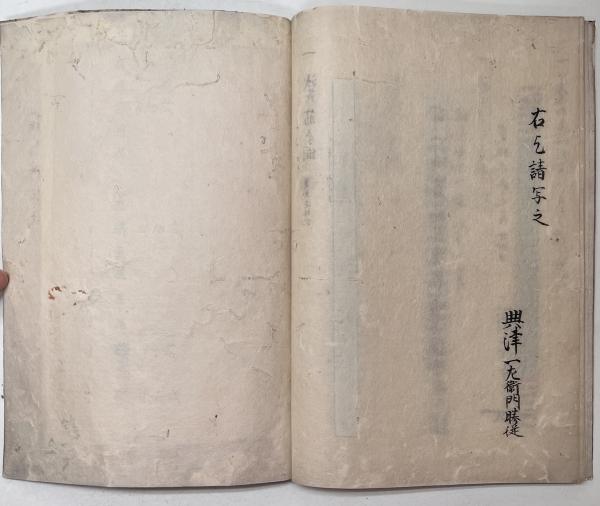 右乞請写之
興津一左衛門勝従